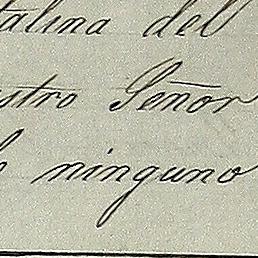 talina del
estro Señor
ninguno